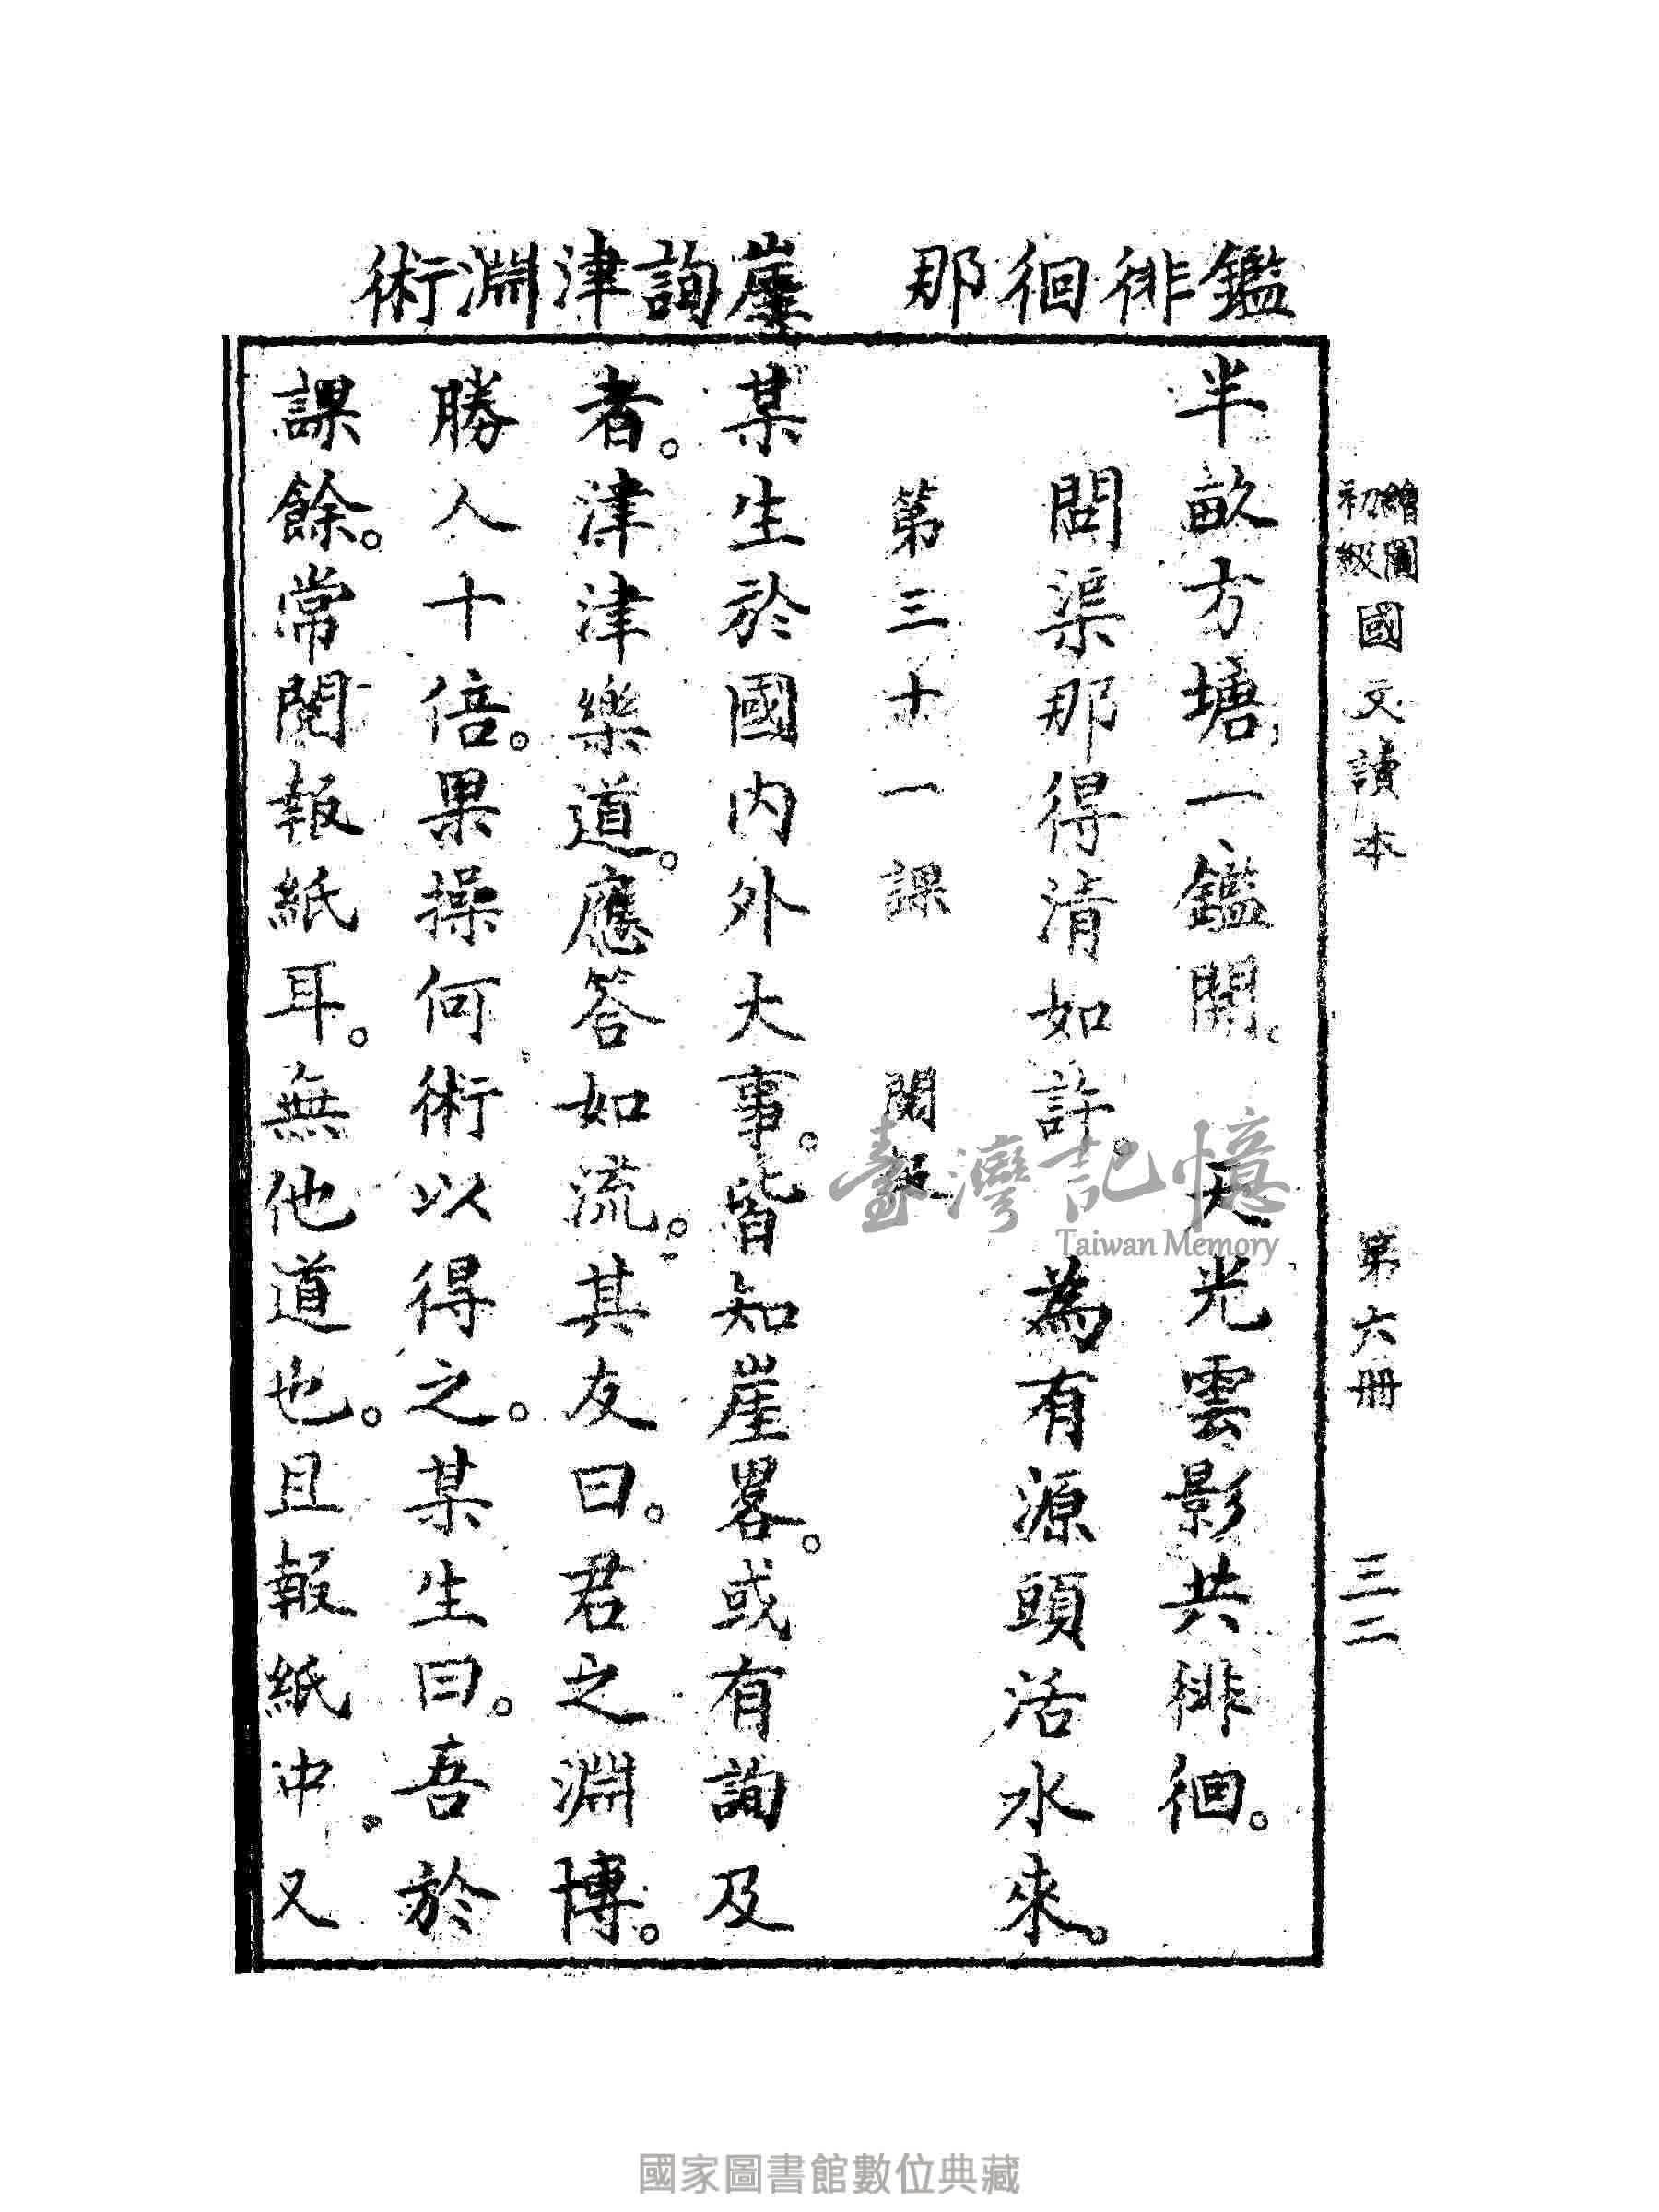 繪圖初級國文讀本 第六冊 三二
鑑徘徊那 崖詢津淵術
半畝方塘一鑑開。天光雲影共徘徊。
問渠那得清如許。為有源頭活水來。
第三十一課 閱報
某生於國內外大事。皆知崖畧。或有詢及
者。津津樂道。應答如流。其友曰。君之淵博。
勝人十倍。果操何術以得之。某生曰。吾於
課餘。常閱報紙耳。無他道也。且報紙中又
臺灣記憶
Taiwan Memory
國家圖書館數位典藏